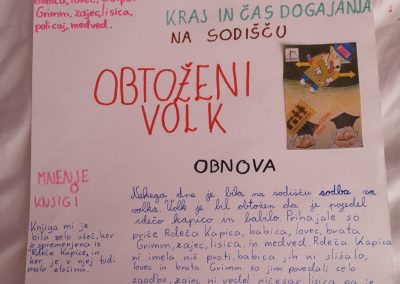 babica, lovec,
Grimm, zajec, lisica,
policaj, medved.
KRAJ IN ČAS DOGAJANJA
NA SODIŠČU
OBTOŽENI
VOLK
OBNOVA
MNENJE
O
KNJIGI
Knjiga mi je
bila zelo všeč, ker
je spremenjena iz
Rdeče Kapice, in
ker je v njej tudi
malo zločina.
Nekega dne je bila na sodišču sodba za
volka. Volk je bil obtožen da je pojedel
rdečo kapico in babico. Prihajale so
priče Rdeča Kapica, babica, lovec, brata
Grimm, zajec, lisica in medved. Rdeča Kapica
ni imela nič proti, babica jih ni slišalo,
lovec in brata Grimm so jim povedali celo
zgodbo, zajec ni vedel ničesar, lisica pa je